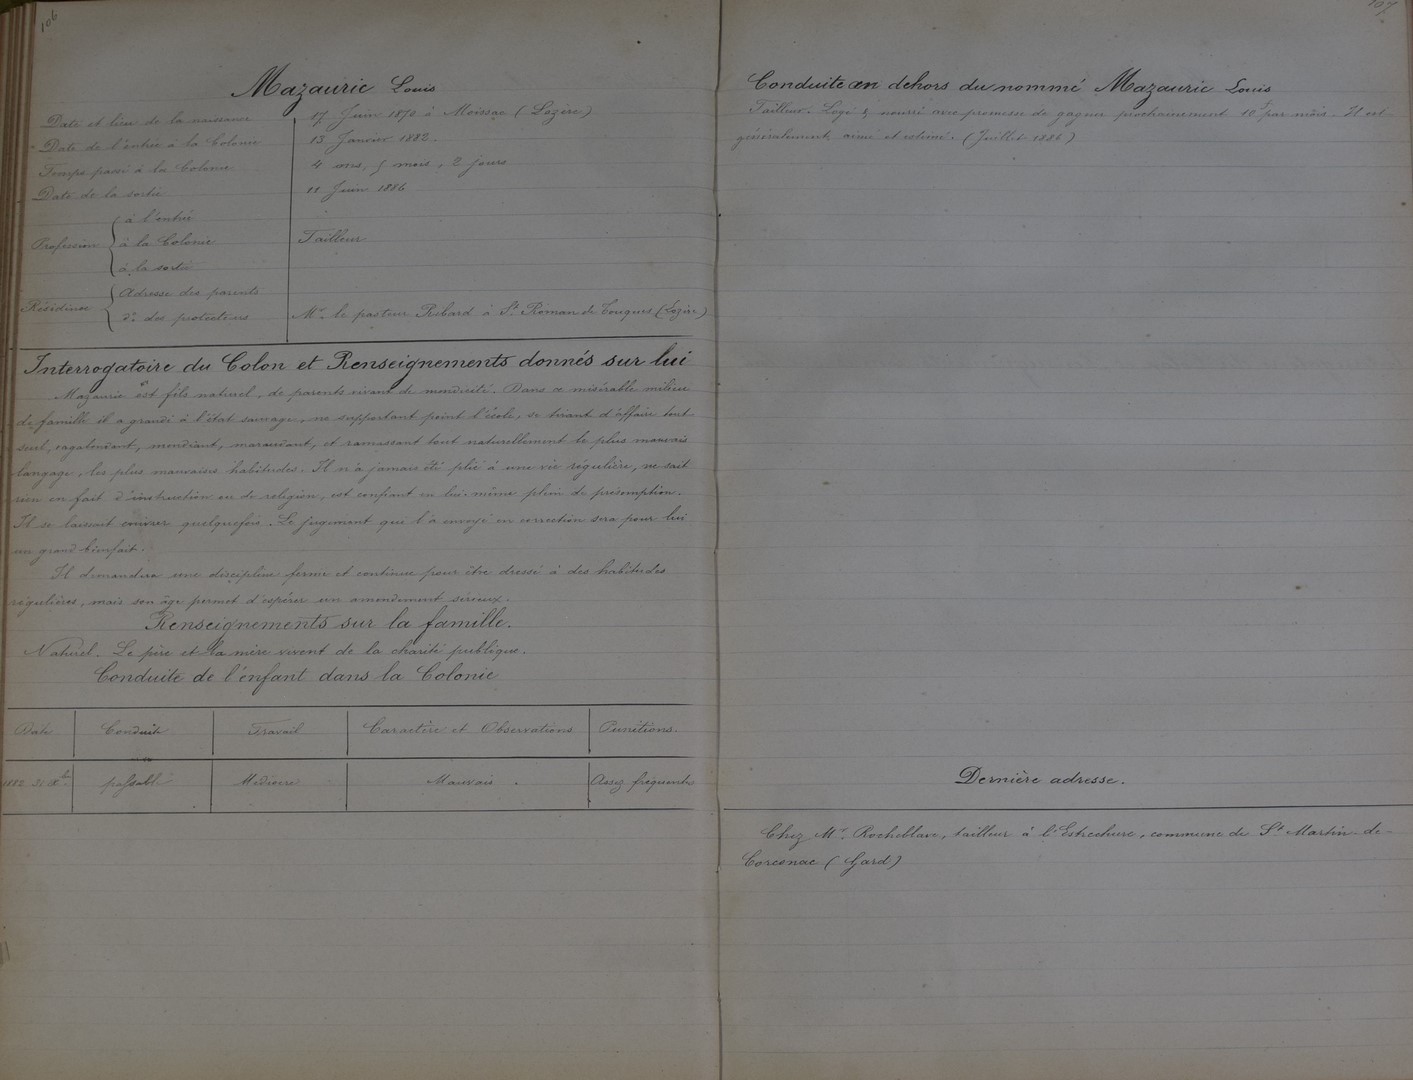 106
Mazauric Louis
Date et lieu de la naissance 17 Juin 1870 à Moissac (Lozère)
Date de l'entrée à la Colonie 13 Janvier 1882.
Temps passé à la Colonie 4 ans, 5 mois, 2 jours
Date de la sortie 11 Juin 1886
Profession
à l'entrée
à la Colonie Tailleur
à la sortie
Résidence
Adresse des parents
do. des protecteurs Mr. le pasteur Ribard à St Roman de Tousques (Lozère)
Interrogatoire du Colon et Renseignements donnés sur lui
Mazauric est fils naturel, de parents vivant de mendicité. Dans ce misérable milieu
de famille il a grandi à l'état sauvage, ne supportant point l'école, se tirant d'affaire tout
seul, vagabondant, mendiant, maraudant, et ramassant tout naturellement le plus mauvais
langage, les plus mauvaises habitudes. Il n'a jamais été plié à une vie régulière, ne sait
rien en fait d'instruction ou de religion, est confiant en lui-même plein de présomption.
Il se laissait enivrer quelquefois. Le jugement qui l'a envoyé en correction sera pour lui
un grand bienfait.
Il demandera une discipline ferme et continue pour être dressé à des habitudes
régulières, mais son âge permet d'espérer un amendement sérieux.
Renseignements sur la famille.
Naturel. Le père et la mère vivent de la charité publique.
Conduite de l'enfant dans la Colonie
Date Conduite Travail Caractère et Observations Punitions.
1882 31 Xbre passable Médiocre Mauvais. Assez fréquentes
107
Conduite en dehors du nommé Mazauric Louis
Tailleur. Logé & nourri avec promesse de gagner prochainement 10f par mois. Il est
généralement aimé et estimé. (Juillet 1886)
Dernière adresse.
Chez Mr. Rocheblave, tailleur à l'Estrechure, commune de St Martin-de-
Corconac (Gard)